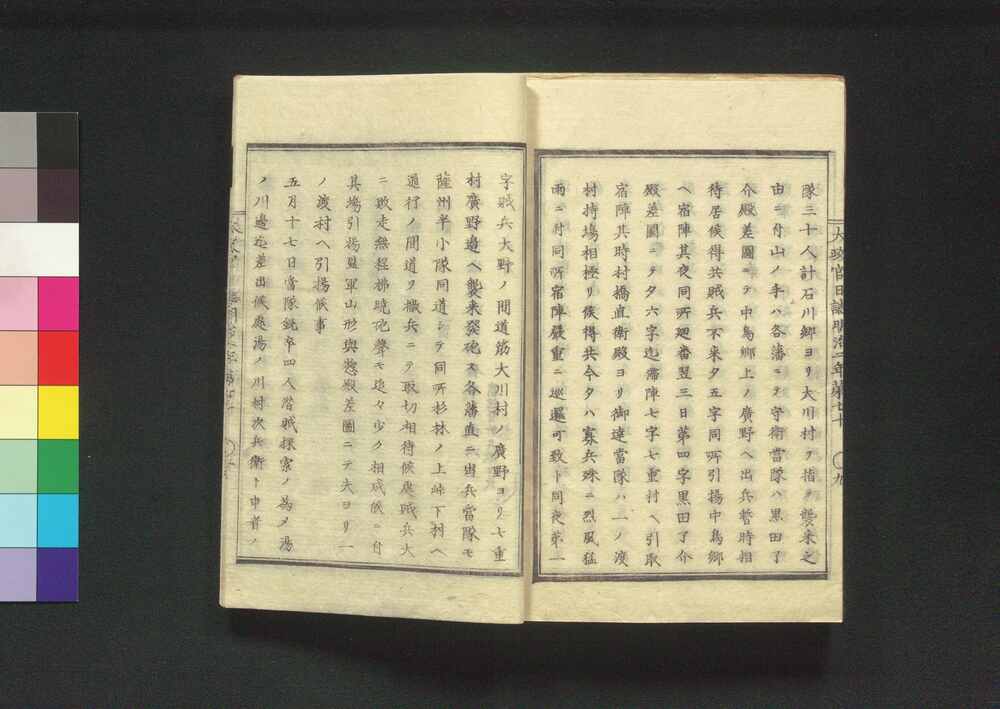 太政官日誌明治二年第七十 九
隊三十人計石川郷ヨリ大川村ヲ指テ襲来之
由ニ付山ノ手ハ各藩ニテ守衛當隊ハ黒田了
介殿差圖ニテ中島郷上ノ廣野ヘ出兵暫時相
待居候得共賊兵不来夕五字同所引揚中島郷
ヘ宿陣其夜同所廻番翌三日第四字黒田了介
殿差圖ニテ夕六字迄滞陣七字七重村ヘ引取
宿陣其時村橋直衛殿ヨリ御達當隊ハ一ノ渡
村持場相極リ候得共今夕ハ寡兵殊ニ烈風猛
雨ニ付同所宿陣嚴重ニ巡邏可致ト同夜第一
字賊兵大野ノ間道筋大川村ノ廣野ヨリ七重
村廣野邉ヘ襲来発砲ス各藩直ニ出兵當隊モ
薩州半小隊同道シテ同所杉林ノ上峠下村ヘ
通行ノ間道ヲ撒兵ニテ取切相待候處賊兵大
ニ敗走無程拂曉砲聲モ追々少ク相成候ニ付
其場引揚監軍山形與惣殿差圖ニテ夫ヨリ一
ノ渡村ヘ引揚候事
五月十七日當隊銃卒四人潜賊探索ノ為メ湯
ノ川邉迄差出候處湯ノ川村次兵衛ト申者ノ